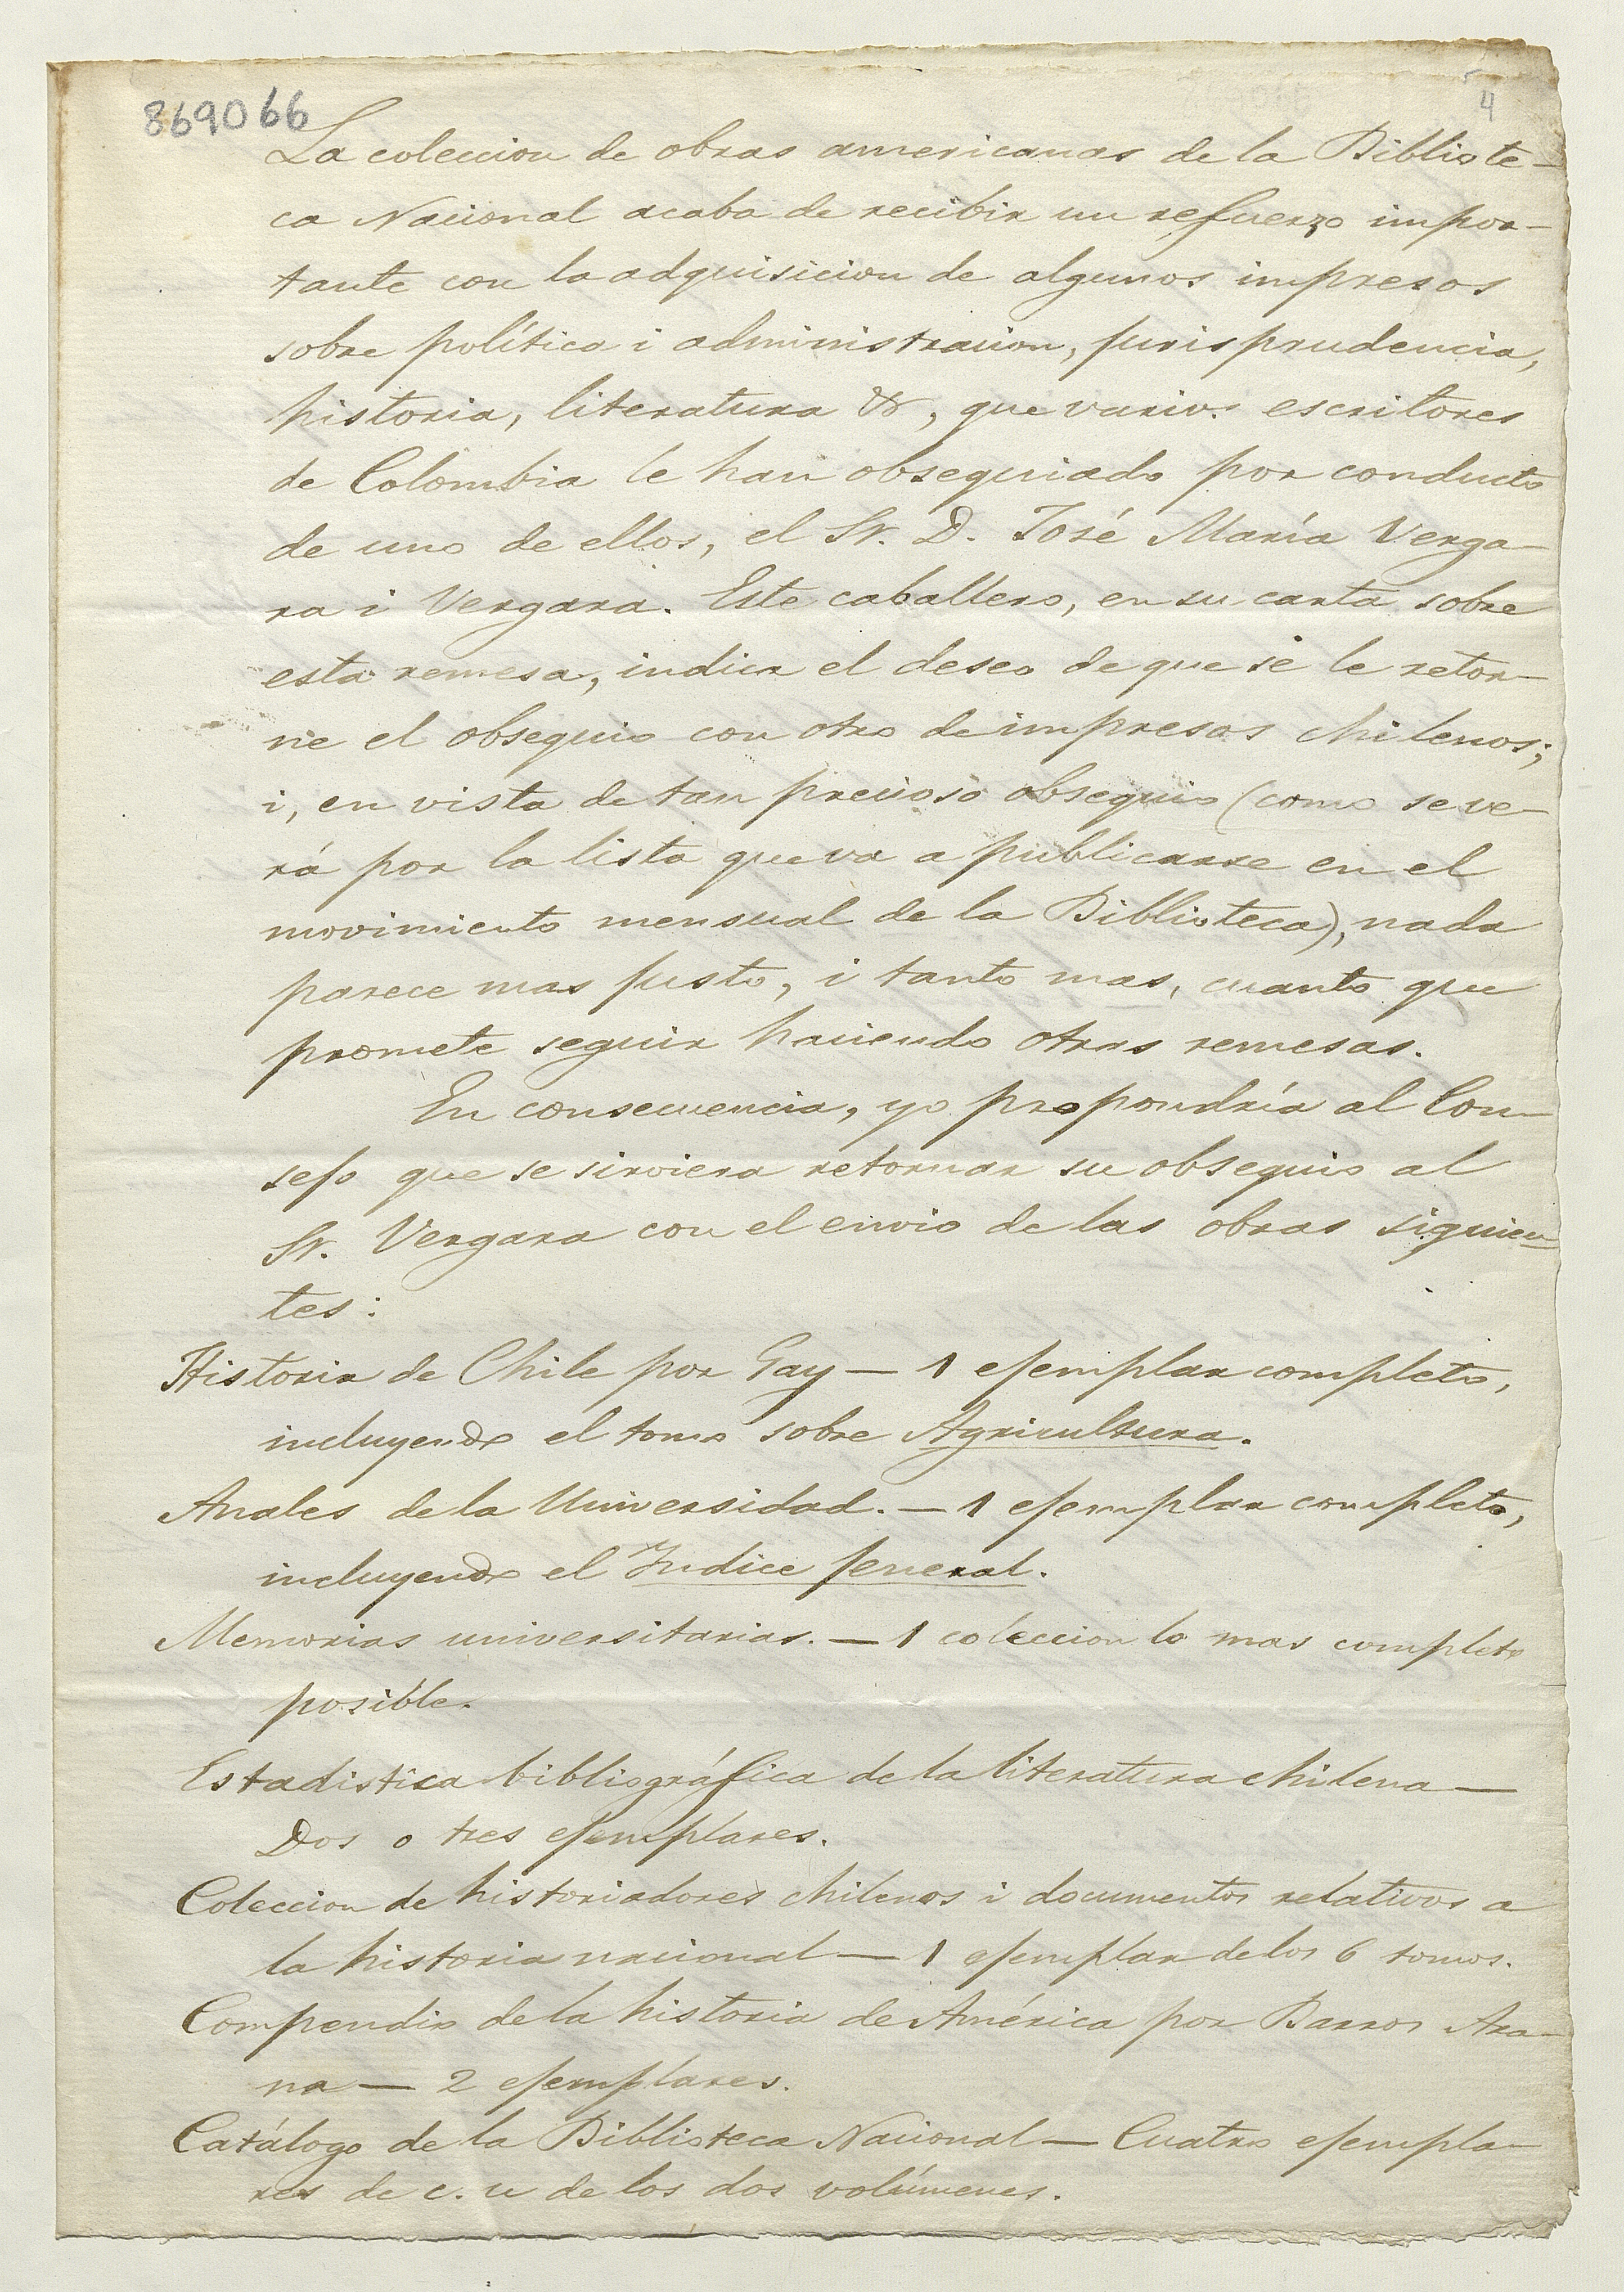 869066
4
La coleccion de obras americanas de la Bibliote-
ca Nacional acaba de recibir un refuerzo impor-
tante con la adquisicion de algunos impresos
sobre política i administracion, jurisprudencia,
historia, literatura &, que varios escritores
de Colombia le han obsequiado por conducto
de uno de ellos, el Sr. D. José María Verga-
ra i Vergara. Este caballero, en su carta sobre
esta remesa, indica el deseo de que se le retor-
ne el obsequio con otro de impresos chilenos;
i, en vista de tan precioso obsequio (como se ve-
rá por la lista que va a publicarse en el
movimiento mensual de la Biblioteca), nada
parece mas justo, i tanto mas, cuanto que
promete seguir haciendo otras remesas.
En consecuencia, yo propondría al Con-
sejo que se sirviera retornar su obsequio al
Sr. Vergara con el envio de las obras siguien-
tes:
Historia de Chile por Gay — 1 ejemplar completo,
incluyendo el tomo sobre Agricultura.
Anales de la Universidad. — 1 ejemplar completo,
incluyendo el Indice jeneral.
Memorias universitarias. — 1 coleccion lo mas completo
posible.
Estadistica bibliográfica de la literatura chilena —
Dos o tres ejemplares.
Coleccion de historiadores chilenos i documentos relativos a
la historia nacional — 1 ejemplar de los 6 tomos.
Compendio de la historia de América por Barros Ara-
na — 2 ejemplares.
Catálogo de la Biblioteca Nacional — Cuatro ejempla-
res de c. u de los dos volúmenes.